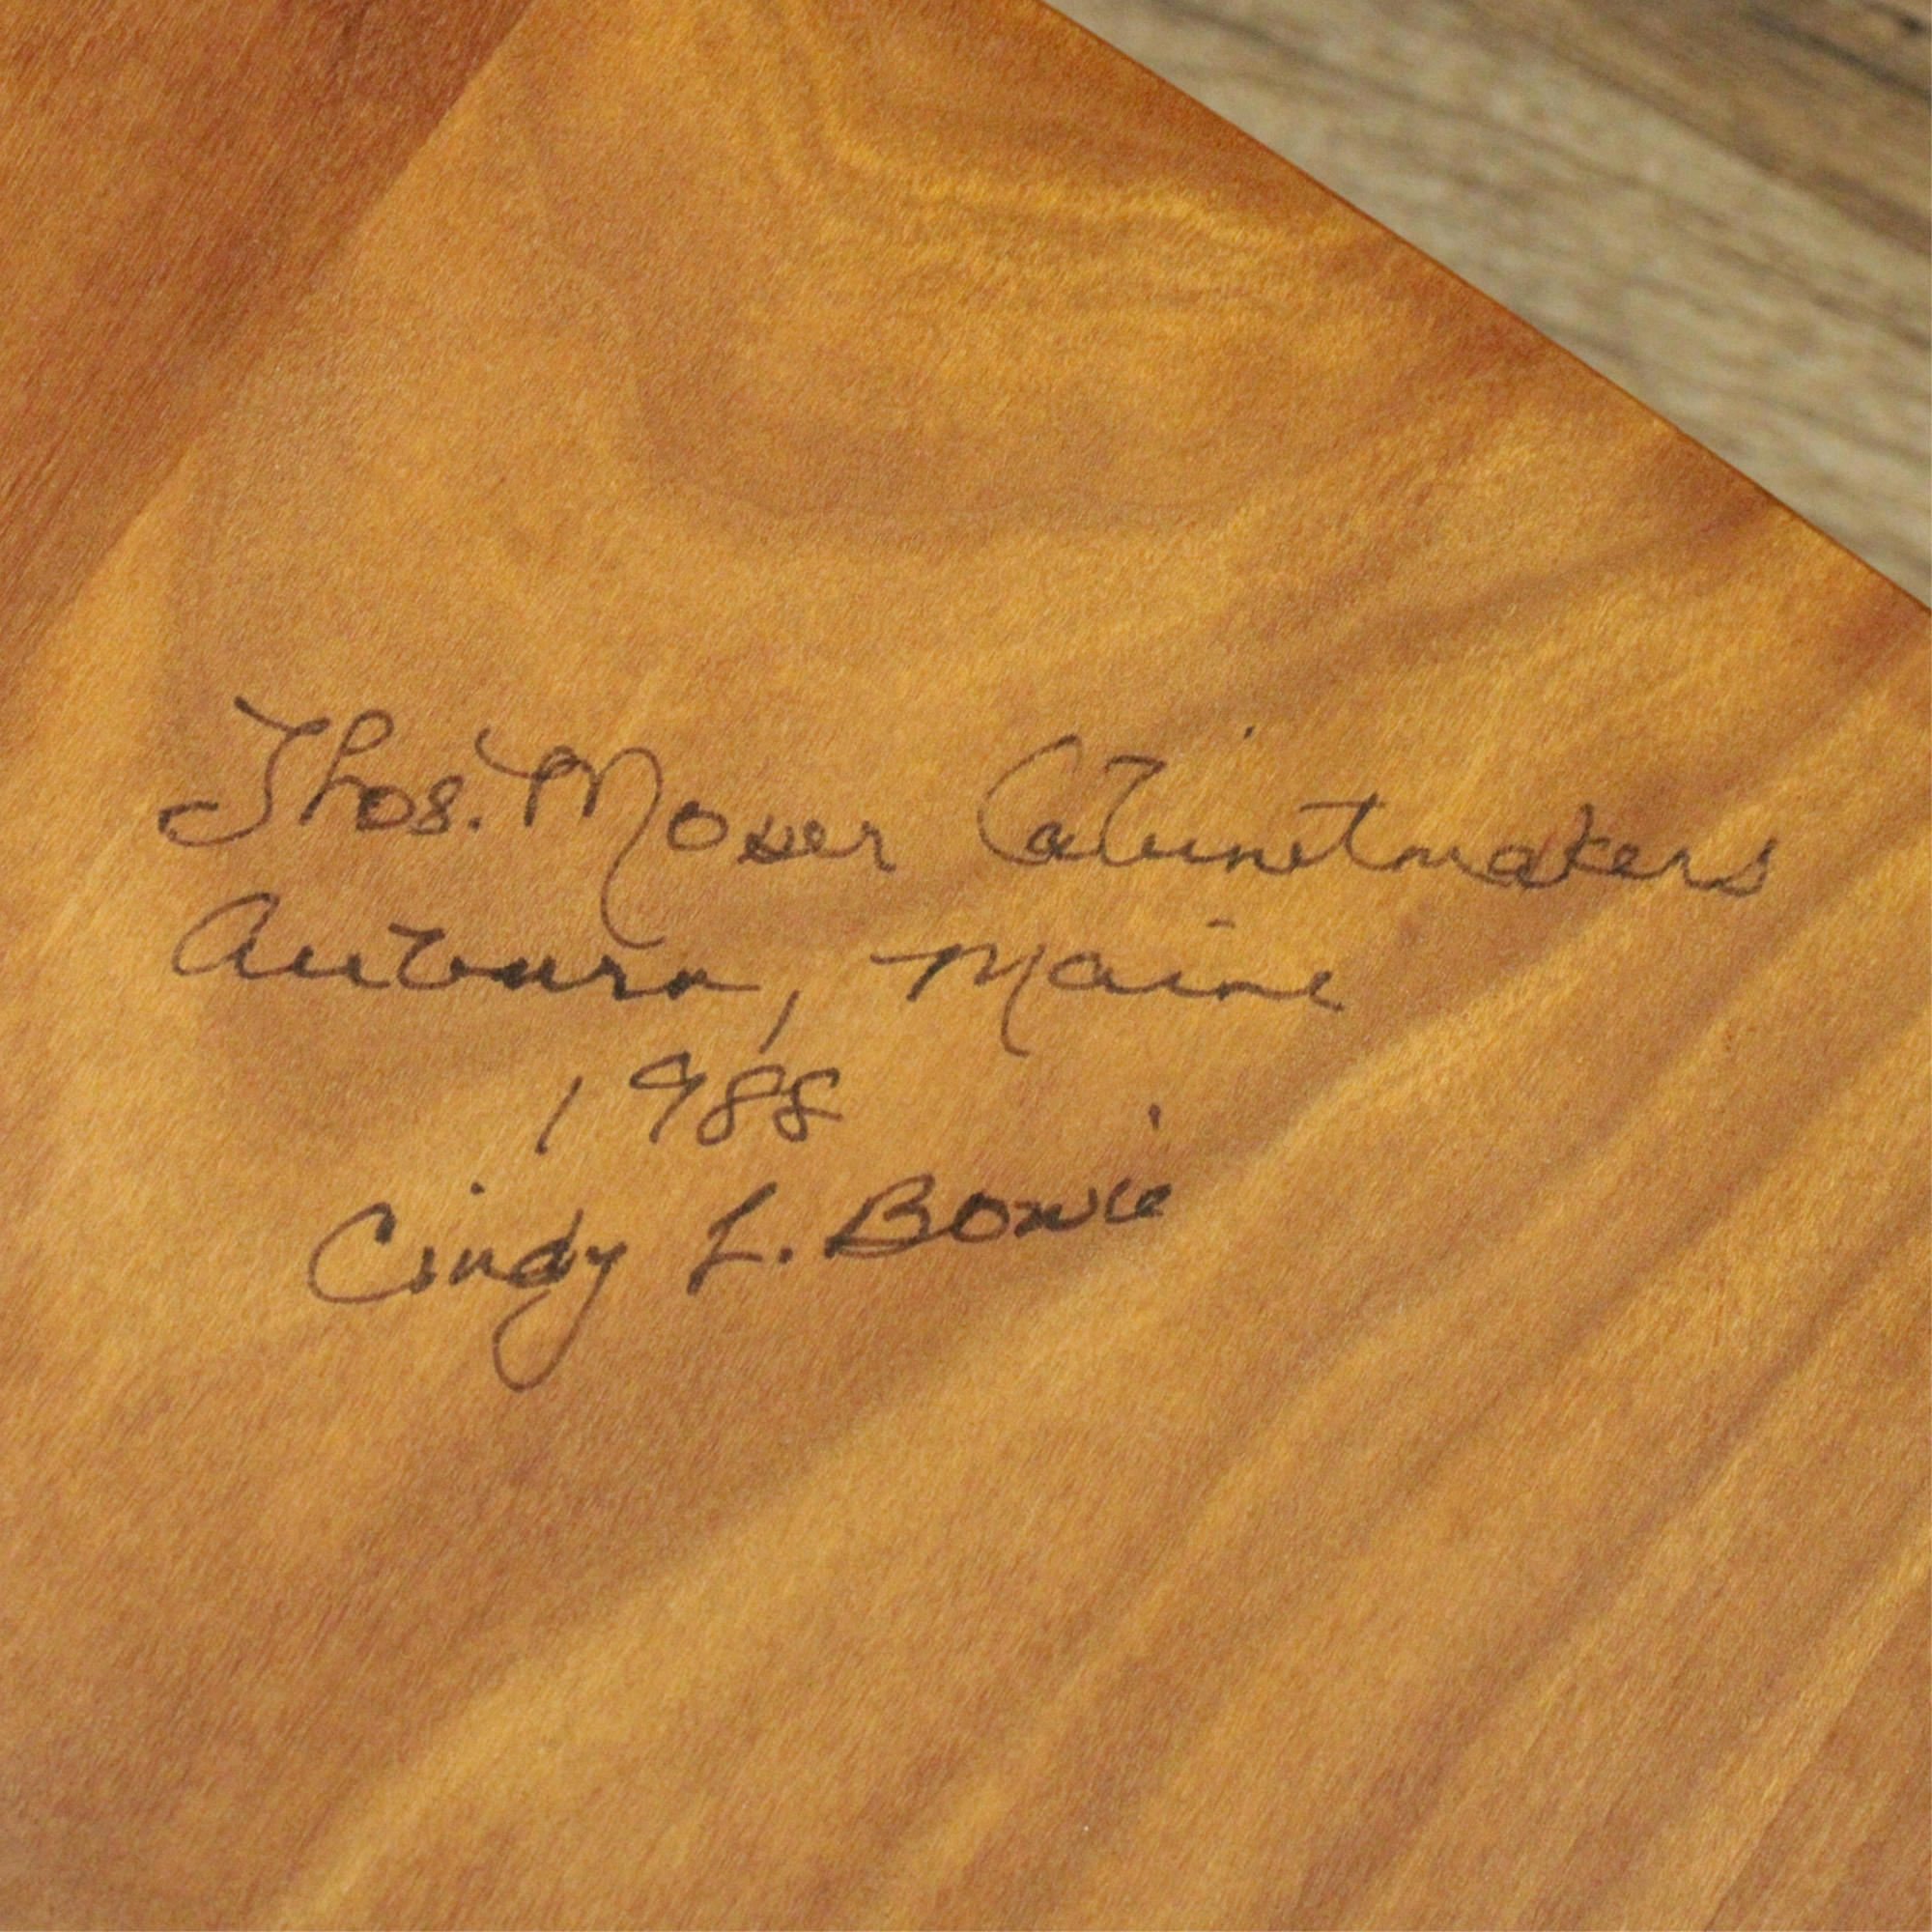 Thos. Moser Cabinetmakers
Auburn, Maine
1988
Cindy L. Bowie